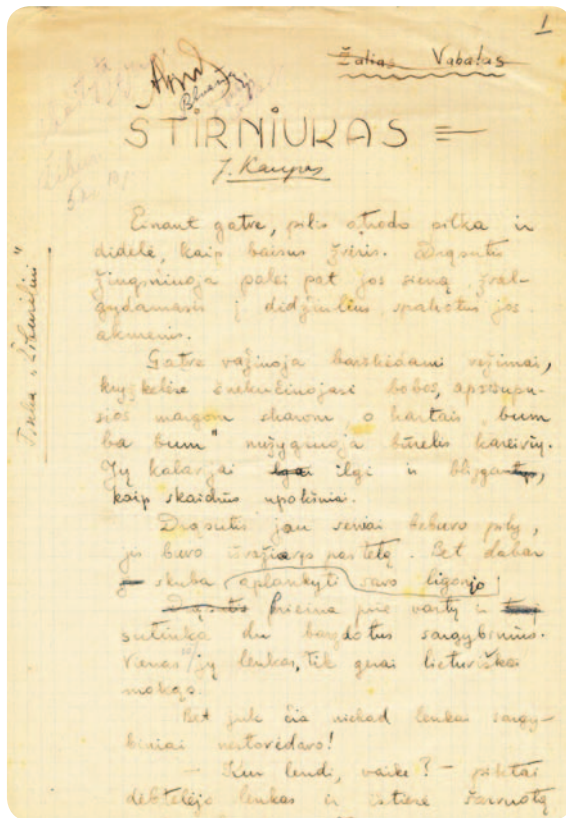 1
Žalias Vabalas
STIRNIUKAS
J. Kaupas
Einant gatve, pilis atrodo pilka ir
didelė, kaip baisus žvėris. Drąsutis
žingsniuoja palei pat jos sieną žval-
gydamasis į didžiulius, apskalotus jos
akmenis.
Gatve važinėja barškėdami vežimai,
kryžkelėse šnekučiuojasi bobos, apsisupu-
sios margom skarom, o kartais „bum
ba bum" nužygiuoja būrelis kareivių.
Jų kalavijai ilgi ir blizga,
kaip skaidrūs upokšniai.
Drąsutis jau seniai bebuvo pily,
jis buvo išvažiavęs pas tetą. Bet dabar
skuba aplankyti savo ligonio
Prieina prie vartų ir
sutinka du barzdotus sargybinius.
Vienas jų lenkas, tik gerai lietuviškai
moka.
Bet juk čia niekad lenkai sargy-
biniai nestovėdavo!
— Kur lendi, vaike? — piktai
dėbtelėjo lenkas ir ištiesė šarvuotą